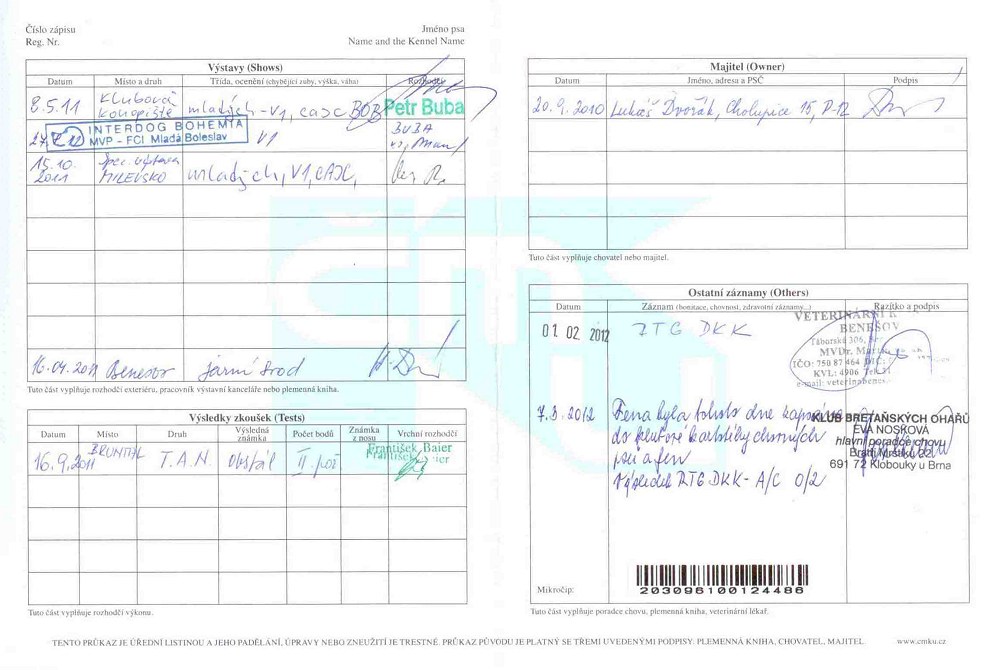 Číslo zápisu
Reg. Nr.
Jméno psa
Name and the Kennel Name
Výstavy (Shows)
Datum Místo a druh Třída, ocenění (chybějící zuby, výška, váha) Rozhodčí
8.5.11 Klubová Konopiště mladých-V1, CAJC, BOB Petr Buba
INTERDOG BOHEMIA
MVP - FCI Mladá Boleslav V1 BUBA
15.10. 2011 Spec. výstava MILEVSKO mladých, V1, CAJC,
16.04.2011 Benešov jarní svod
Tuto část vyplňuje rozhodčí exteriéru, pracovník výstavní kanceláře nebo plemenná kniha.
Výsledky zkoušek (Tests)
Datum Místo Druh Výsledná známka Počet bodů Známka z nosu Vrchní rozhodčí
16.9.2011 BRUNTÁL T.A.N. Obstál II. František Baier
Tuto část vyplňuje rozhodčí výkonu.
Majitel (Owner)
Datum Jméno, adresa a PSČ Podpis
20.9.2010 Lukáš Dvořák, Cholupice 15, P-12
Tuto část vyplňuje chovatel nebo majitel.
Ostatní záznamy (Others)
Datum Záznam (bonitace, chovnost, zdravotní záznamy...) Razítko a podpis
01 02 2012 RTG DKK
VETERINÁRNÍ
BENEŠOV
Táborská 306,
MVDr.
IČO: 750 87 464
KVL: 4906
e-mail:
7.3.2012 Fena byla tohoto dne zapsána
do klubové kartotéky chovných
psů a fen
Výsledek RTG DKK - A/C 0/2
KLUB BRETAŇSKÝCH OHAŘŮ
EVA NOSKOVÁ
hlavní poradce chovu
Bratří Mrštíků 22,
691 72 Klobouky u Brna
Mikročip:
203098100124486
Tuto část vyplňuje poradce chovu, plemenná kniha, veterinární lékař.
TENTO PRŮKAZ JE ÚŘEDNÍ LISTINOU A JEHO PADĚLÁNÍ, ÚPRAVY NEBO ZNEUŽITÍ JE TRESTNÉ. PRŮKAZ PŮVODU JE PLATNÝ SE TŘEMI UVEDENÝMI PODPISY: PLEMENNÁ KNIHA, CHOVATEL, MAJITEL. www.cmku.cz